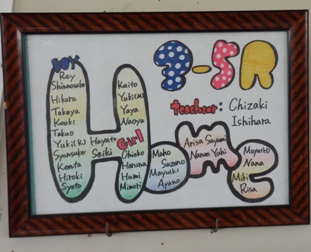 BOY
Rey
Shinnosuke
Hikaru
Takaya
Kouki
Takuo
Yuki(K)
Syunsuke
Kenta
Hiroki
Syoto
Hayato
Seiki
Kaito
Yuki(M)
Yuya
Naoya
Girl
Chieko
Haruna
Humi
Minori
Maho
Sazono
Mayuki
Ayano
Arisa Sayaka
Nanae Yuki
Mayuko
Nana
Miki
Risa
Home
3-5R
teachear: Chizaki
Ishihara